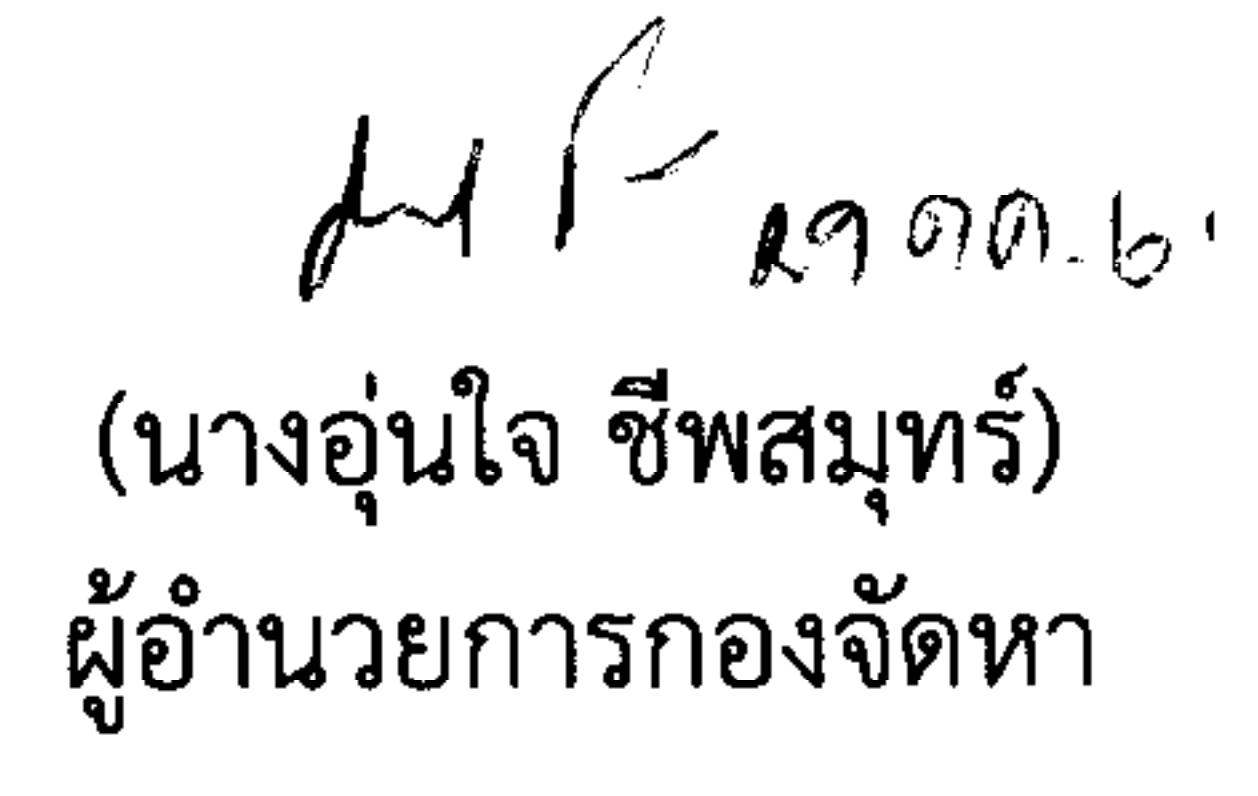 (นางอุ่นใจ ชีพสมุทร์)
ผู้อำนวยการกองจัดหา